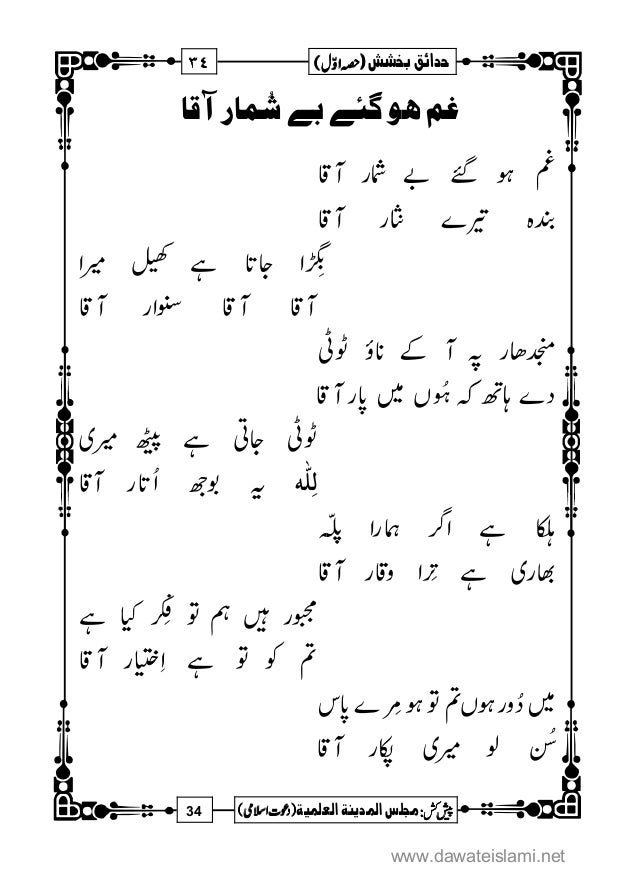 حدائق بخشش (حصہ اوّل)
٣٤
غم ہو گئے بے شُمار آقا
غم ہو گئے بے شمار آقا
بندہ تیرے نثار آقا
بِگڑا جاتا ہے کھیل میرا
آقا آقا سنوار آقا
منجدھار پہ آ کے ناؤ ٹوٹی
دے ہاتھ کہ ہُوں میں پار آقا
ٹوٹی جاتی ہے پیٹھ میری
لِلّٰہ یہ بوجھ اُتار آقا
ہلکا ہے اگر ہمارا پلّہ
بھاری ہے تِرا وقار آقا
مجبور ہیں ہم تو فِکر کیا ہے
تم کو تو ہے اِختیار آقا
میں دُور ہوں تم تو ہو مِرے پاس
سُن لو میری پکار آقا
پیش کش: مجلس المدینۃ العلمیۃ (دعوتِ اسلامی)
34
www.dawateislami.net